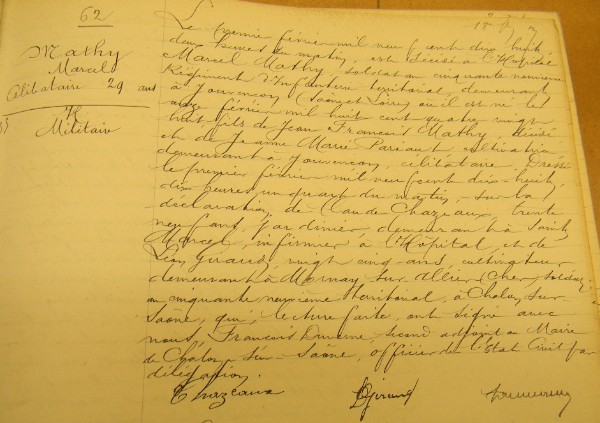 62
Mathy
Marcel
Célibataire 29 ans
Militaire
Le premier février mil neuf cent dix huit
deux heures du matin, est décédé à l'Hôpital
Marcel Mathy, soldat au cinquante neuvième
Régiment d'Infanterie territorial, demeurant
à Jouvencon (Saône et Loire) où il est né le
février mil huit cent quatre vingt
huit fils de Jean François Mathy, décédé
et de Jeanne Marie Pariaut cultivatrice
demeurant à Jouvencon, célibataire. Dressé
le premier février mil neuf cent dix huit,
dix heures un quart du matin, sur la
déclaration de Claude Chazeaux, trente
neuf ans, jardinier, demeurant à Saint
Marcel, infirmier à l'Hôpital, et de
Léon Girard, vingt cinq ans, cultivateur
demeurant à Mornay sur Allier (Cher) soldat
au cinquante neuvième territorial, à Chalon sur
Saône, qui, lecture faite, ont signé avec
nous, François, second adjoint au Maire
de Châlon-sur-Saône, officier de l'Etat Civil par
délégation.
Chazeaux LGirard